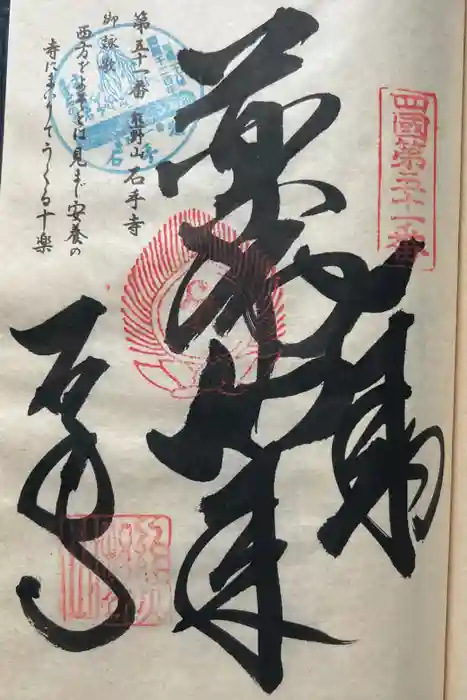 四國第五十一番
薬師如来
第五十一番 熊野山 石手寺
御詠歌
西方をよそとは見まじ安養の
寺にまいりてうくる十楽
石手寺